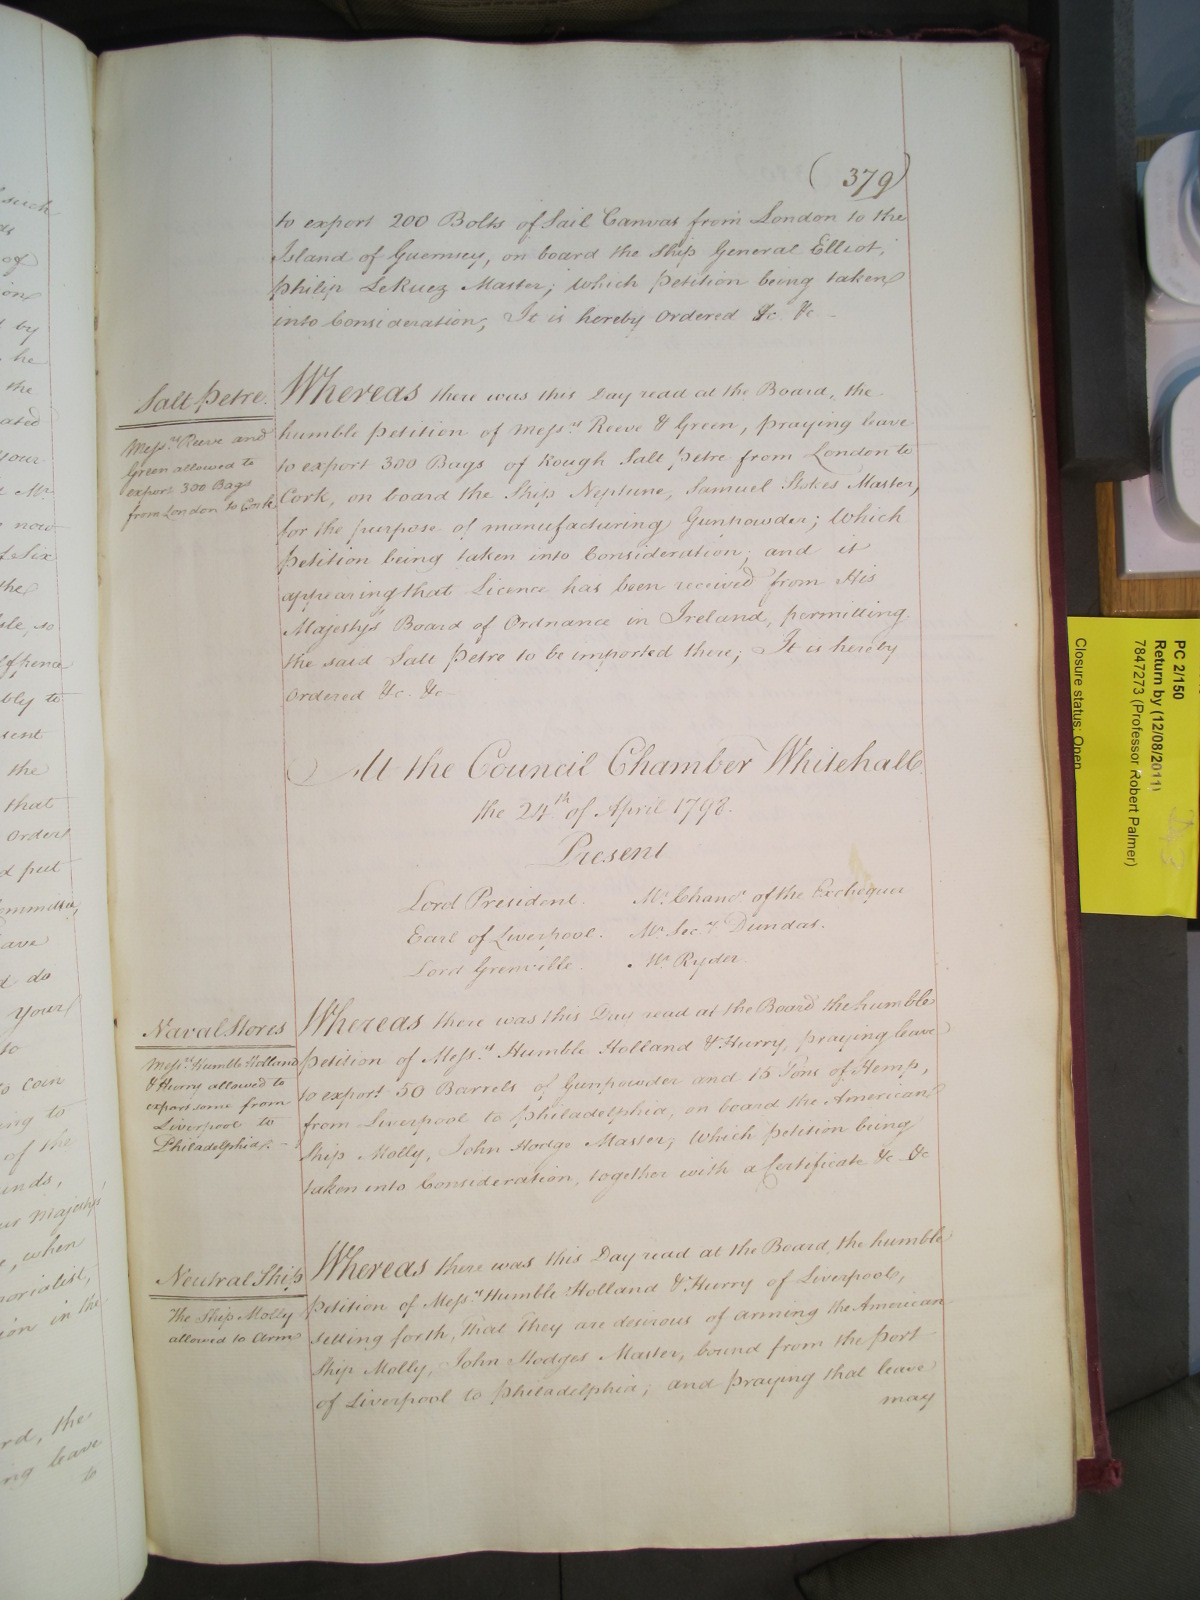 (379)
to export 200 Bolts of Sail Canvas from London to the
Island of Guernsey, on board the Ship General Elliot,
Philip LeRuez Master; which Petition being taken
into Consideration, It is hereby Ordered &c. &c
Salt Petre.
Messrs. Reeve and
Green allowed to
export 300 Bags
from London to Cork
Whereas there was this Day read at the Board, the
humble Petition of Messrs. Reeve & Green, praying leave
to export 300 Bags of Rough Salt Petre from London to
Cork, on board the Ship Neptune, Samuel Stokes Master,
for the purpose of manufacturing Gunpowder; Which
Petition being taken into Consideration, and it
appearing that Licence has been received from His
Majesty's Board of Ordnance in Ireland, permitting
the said Salt Petre to be imported there; It is hereby
Ordered &c. &c
At the Council Chamber Whitehall
the 24th of April 1798.
Present
Lord President. Mr. Chanr. of the Exchequer
Earl of Liverpool. Mr. Secry. Dundas.
Lord Grenville. Mr. Ryder.
Naval Stores
Messrs. Humble Holland
& Hurry allowed to
export some from
Liverpool to
Philadelphia.
Whereas there was this Day read at the Board the humble
Petition of Messrs. Humble Holland & Hurry, praying leave
to export 50 Barrels of Gunpowder and 15 Tons of Hemp,
from Liverpool to Philadelphia, on board the American
Ship Molly, John Hodge Master; Which Petition being
taken into Consideration, together with a Certificate &c &c
Neutral Ship
The Ship Molly
allowed to Arm
Whereas there was this Day read at the Board, the humble
Petition of Messrs. Humble Holland & Hurry of Liverpool,
setting forth, That they are desirous of arming the American
Ship Molly, John Hodges Master, bound from the Port
of Liverpool to Philadelphia; and praying that leave
may
PC 2/150
Return by (12/08/2011)
7847273 (Professor Robert Palmer)
Closure status: Open
such
of
by
he
the
ated
your
Mr
now
Six
the
bly to
sent
the
that
Order
put
ave
do
your
to
Coin
ing to
of the
Majesty's
when
morialist,
ion in the
rd, the
ng leave
to